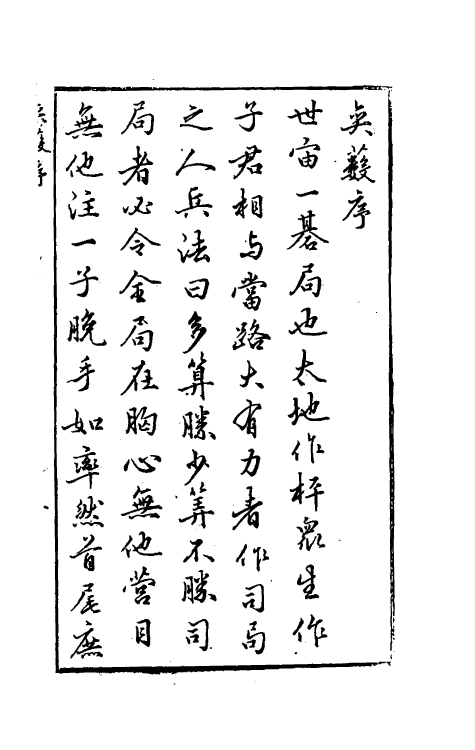 奕藪序
世宙一碁局也大地作枰眾生作
子君相与當路大有力者作司局
之人兵法曰多算勝少筭不勝司
局者必令全局在胸心無他營目
無他注一子脫手如率然首尾庶
奕藪序